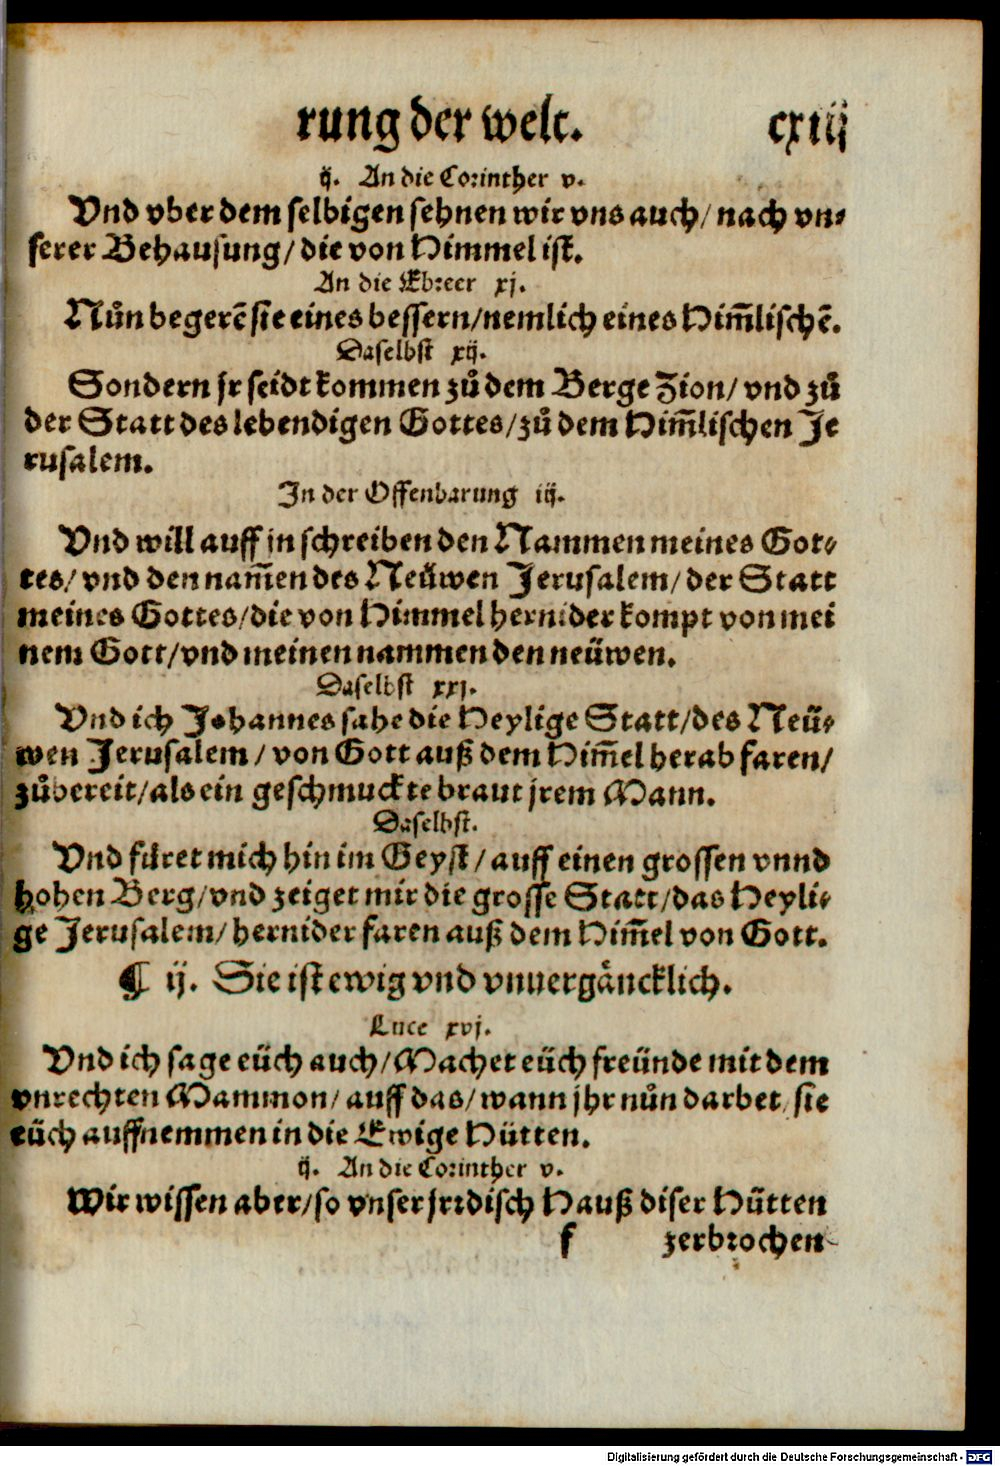 rung der welt. cxiij
ij. An die Corinther v.
Vnd vber dem selbigen sehnen wir vns auch/ nach vn⸗
serer Behausung/ die von Himmel ist.
An die Ebreer xj.
Nůn begerē sie eines bessern/nemlich eines Him̄lischē.
Daselbst xij.
Sondern jr seidt kommen zů dem Berge Zion/ vnd zů
der Statt des lebendigen Gottes/zů dem Him̄lischen Je
rusalem.
In der Offenbarung iij.
Vnd will auff jn schreiben den Nammen meines Got⸗
tes/ vnd den nam̄en des Neüwen Jerusalem/ der Statt
meines Gottes/die von Himmel hernider kompt von mei
nem Gott/vnd meinen nammen den neüwen.
Daselbst xxj.
Vnd ich Johannes sahe die Heylige Statt/des Neü⸗
wen Jerusalem/ von Gott auß dem Him̄el herab faren/
zůbereit/als ein geschmuckte braut jrem Mann.
Daselbst.
Vnd füret mich hin im Geyst/ auff einen grossen vnnd
hohen Berg/vnd zeiget mir die grosse Statt/das Heyli⸗
ge Jerusalem/ hernider faren auß dem Him̄el von Gott.
¶ ij. Sie ist ewig vnd vnuergäncklich.
Luce xvj.
Vnd ich sage eüch auch/Machet eüch freünde mit dem
vnrechten Mammon/ auff das/ wann jhr nůn darbet/ sie
eüch auffnemmen in die Ewige Hütten.
ij. An die Corinther v.
Wir wissen aber/so vnser jrdisch Hauß diser Hütten
f zerbrochen
Digitalisierung gefördert durch die Deutsche Forschungsgemeinschaft - DFG